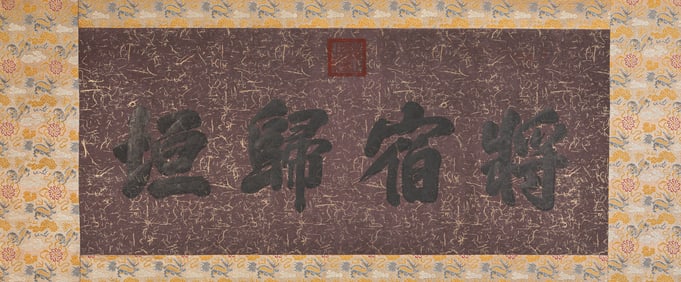 將宿歸垣